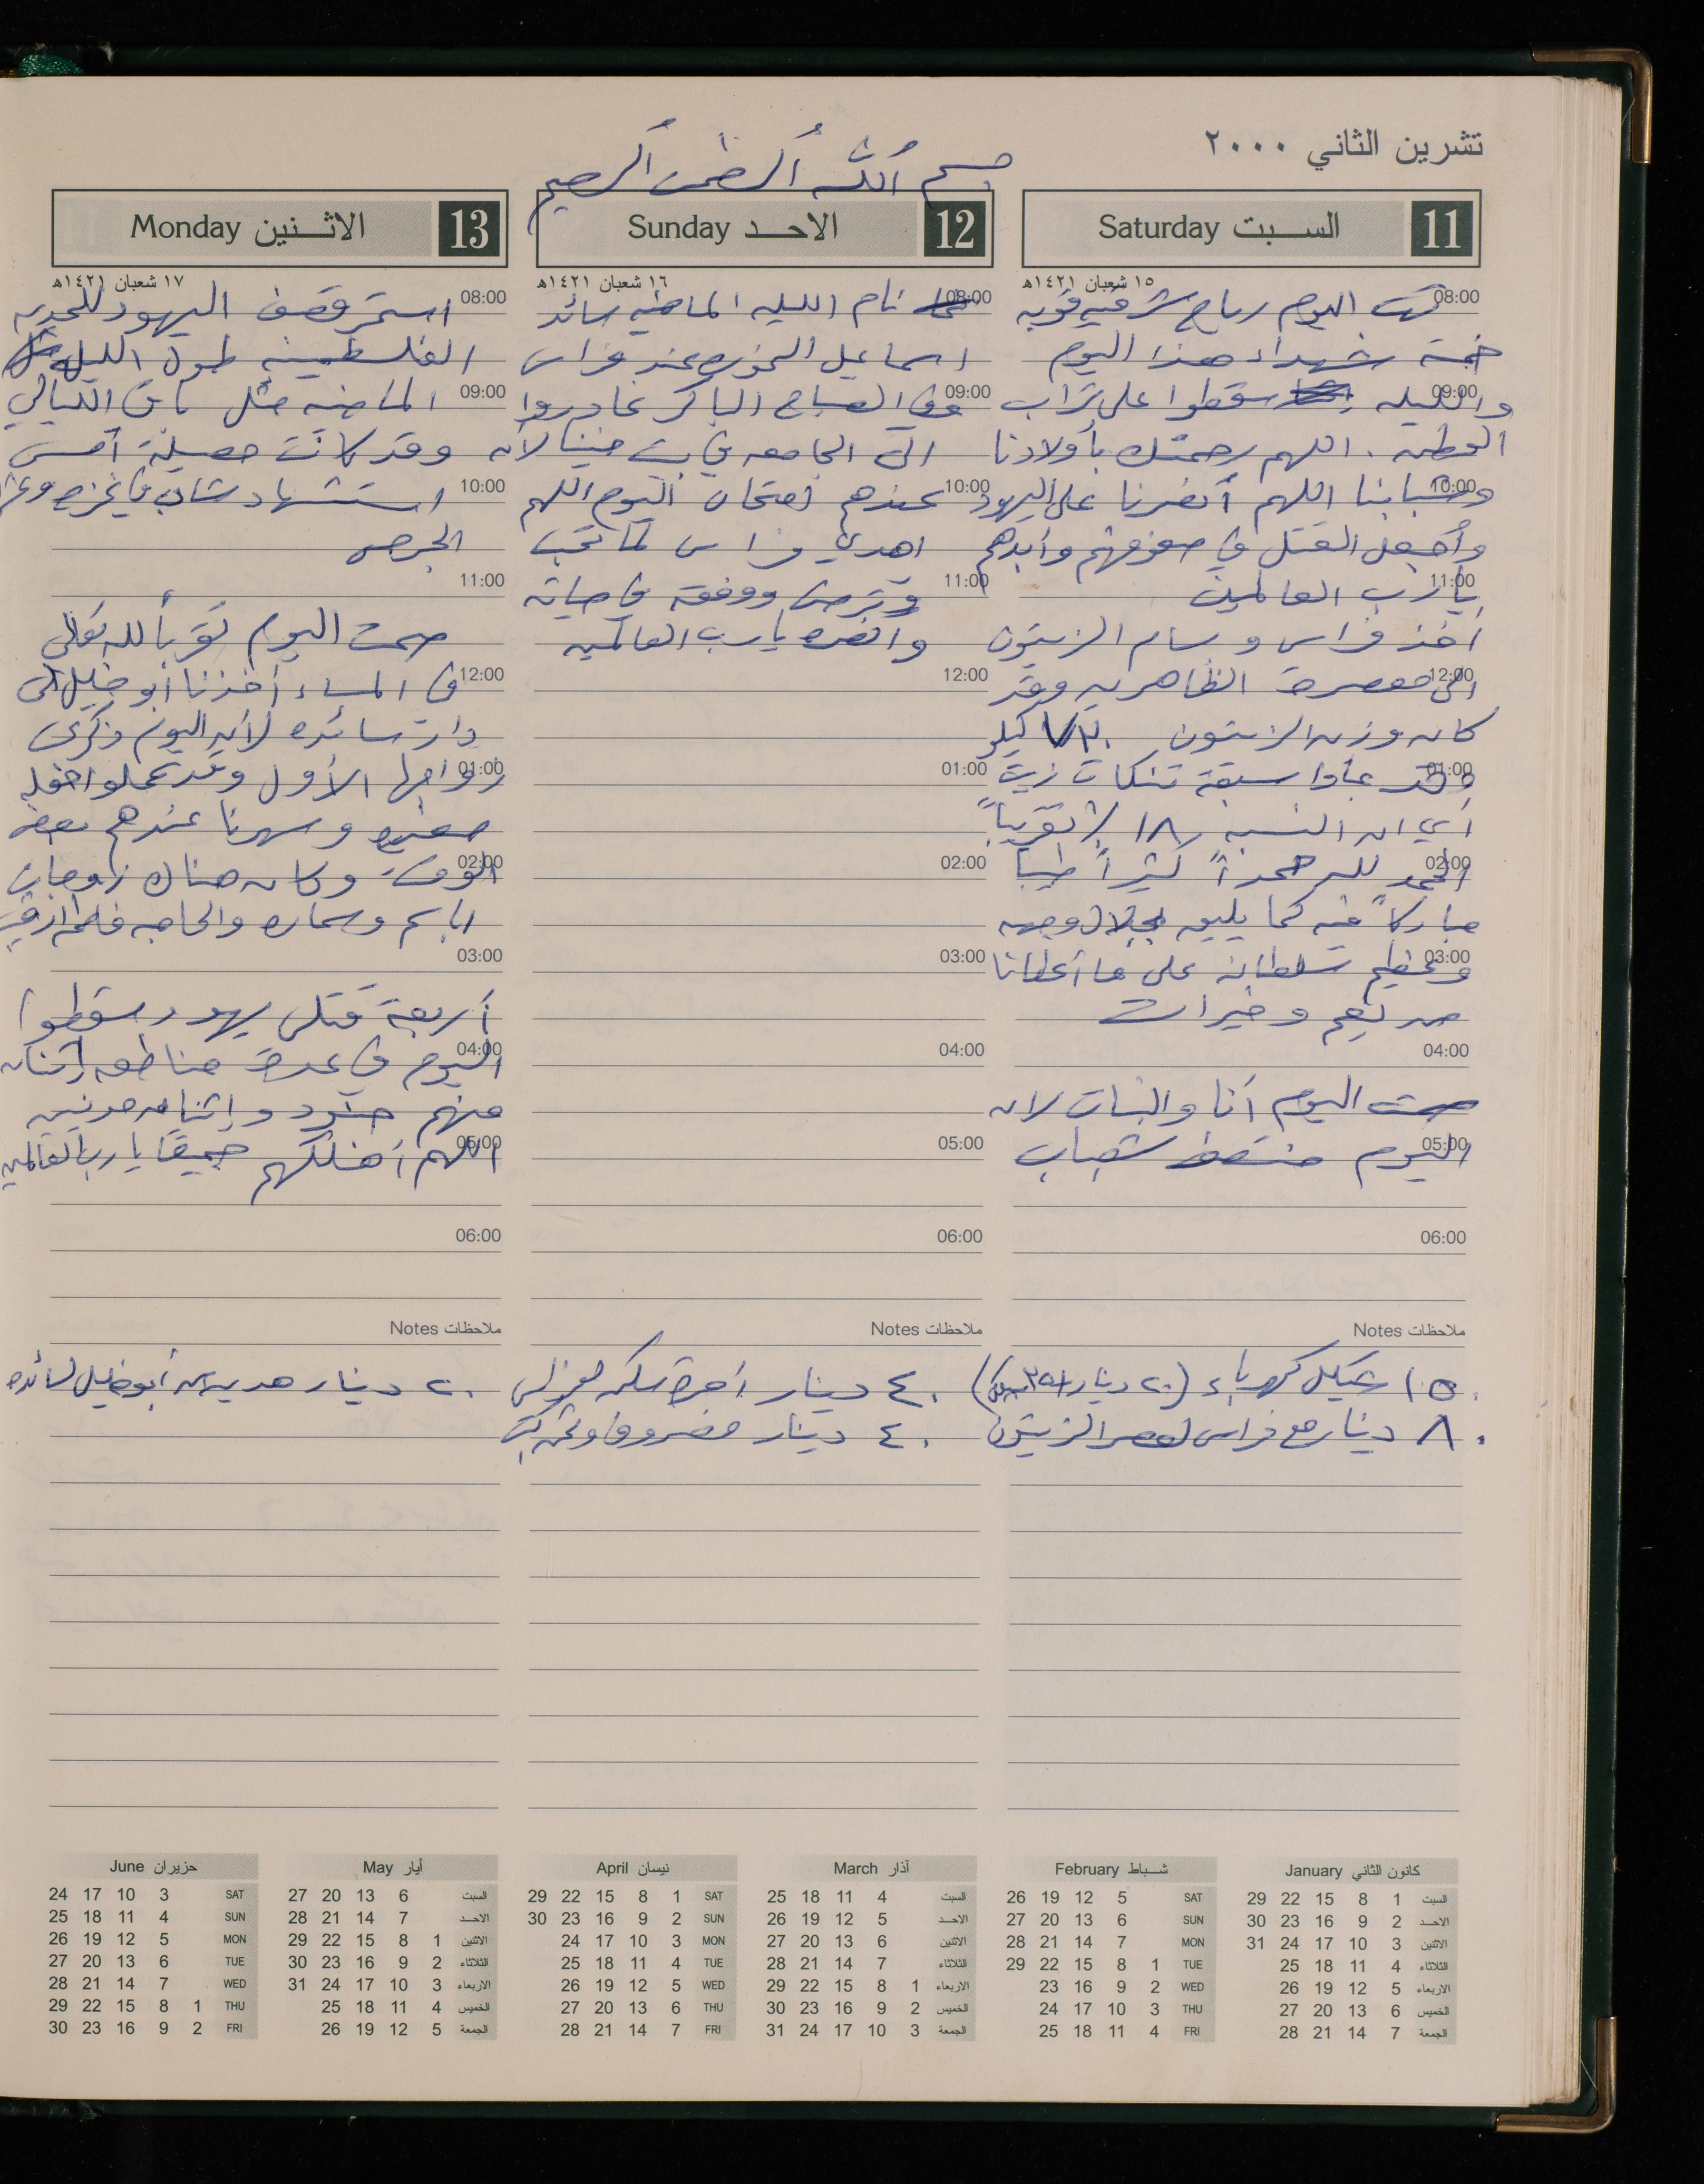 تشرين الثاني ٢٠٠٠
بسم الله الرحمن الرحيم
11 السبت Saturday
١٥ شعبان ١٤٢١هـ
08:00
هبت اليوم رياح شرقية قوية
خمسة شهداء هذا اليوم
09:00
والليله سقطوا على تراب
الوطن . اللهم رحمتك بأولادنا
10:00
وشبابنا اللهم أنصرنا على اليهود
وأجعل القتل في صفوفهم وأبدهم
11:00
يا رب العالمين
أخذ فراس وسام الزيتون
12:00
الى معصرة الظاهريه وقد
كان وزن الزيتون كيلو
01:00
وقد عادا سبعة تنكات زيت
أي ان النسبه ١٨ % تقريباً
02:00
الحمد لله حمداً كثيراً طيبا
مباركاً فيه كما يليق بجلال وجهه
03:00
وعظيم سلطانه على ما أعطانا
من نعم وخيرات
04:00
صمت اليوم أنا والبنات لان
05:00
اليوم منتصف شعبان
06:00
ملاحظات Notes
١٥٠ شيكل كهرباء (٢٠ دينار
٨٠ دينار مع فراس لعصر الزيتون
12 الاحد Sunday
١٦ شعبان ١٤٢١هـ
08:00
نام الليله الماضيه سائد
اسماعيل عند فراس
09:00
وفي الصباح الباكر غادروا
الى الجامعه في بت حنينا لأن
10:00
عندهم إمتحان اليوم اللهم
اهدي فراس لما تحب
11:00
وترضى ووفقه في حياته
وانصره يا رب العالمين
12:00
01:00
02:00
03:00
04:00
05:00
06:00
ملاحظات Notes
٤٠ دينار أجرة
٤٠ دينار مصروف
13 الاثنين Monday
١٧ شعبان ١٤٢١هـ
08:00
استمر قصف اليهود للمدن
الفلسطينيه طول الليل
09:00
الماضيه مثل باقي الليالي
وقد كانت حصيلة أمس
10:00
استشهاد شاب في غزه
الجرحى
11:00
صمت اليوم تقرباً لله تعالى
12:00
في المساء أخذنا أبو خليل الى
دار سائده لأن اليوم ذكرى
01:00
زواجها الأول وقد عملوا حفله
صغيره وسهرنا عندهم بعض
02:00
الوقت وكان هناك زوجات
باسم وسماره والحاجه
03:00
أربعة قتلى يهود سقطوا
04:00
اليوم في عدة مناطق إثنان
منهم جنود وإثنان مدنيين
05:00
اللهم أهلكهم جميعا يا رب العالمين
06:00
ملاحظات Notes
٢٠ دينار هديه من أبو خليل لسائده
كانون الثاني January
السبت 1 8 15 22 29
الاحد 2 9 16 23 30
الاثنين 3 10 17 24 31
الثلاثاء 4 11 18 25
الاربعاء 5 12 19 26
الخميس 6 13 20 27
الجمعة 7 14 21 28
شباط February
SAT 5 12 19 26
SUN 6 13 20 27
MON 7 14 21 28
TUE 1 8 15 22 29
WED 2 9 16 23
THU 3 10 17 24
FRI 4 11 18 25
آذار March
السبت 4 11 18 25
الاحد 5 12 19 26
الاثنين 6 13 20 27
الثلاثاء 7 14 21 28
الاربعاء 1 8 15 22 29
الخميس 2 9 16 23 30
الجمعة 3 10 17 24 31
نيسان April
SAT 1 8 15 22 29
SUN 2 9 16 23 30
MON 3 10 17 24
TUE 4 11 18 25
WED 5 12 19 26
THU 6 13 20 27
FRI 7 14 21 28
أيار May
السبت 6 13 20 27
الاحد 7 14 21 28
الاثنين 1 8 15 22 29
الثلاثاء 2 9 16 23 30
الاربعاء 3 10 17 24 31
الخميس 4 11 18 25
الجمعة 5 12 19 26
حزيران June
SAT 3 10 17 24
SUN 4 11 18 25
MON 5 12 19 26
TUE 6 13 20 27
WED 7 14 21 28
THU 1 8 15 22 29
FRI 2 9 16 23 30